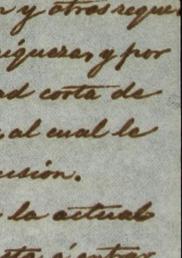 y otras reque
iquezas, y por
ad corta de
, al cual le
usión.
la actual
entrar